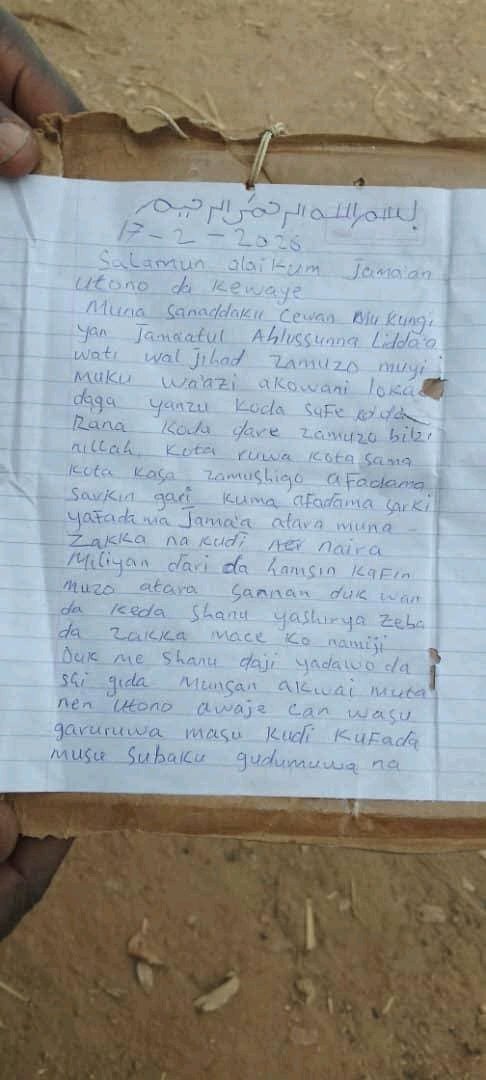 بسم الله الرحمن الرحيم
17-2-2026
Salamun alaikum Jama'an
utono da kewaye
Muna sanaddaku cewan mu kungi
yan Jama'atul Ahlussunna Lidda'a
wati wal jihad zamuzo muyi
muku wa'azi akowani loka
daga yanzu koda safe
Rana koda dare zamuzo bilzi
nillah kota ruwa kota sama
kota kasa zamushigo afadama
sarkin gari kuma afadama sarki
yafadama Jama'a atara muna
Zakka na kudi naira
Miliyan dari da hamsin kafin
muzo atara sannan duk wan
da keda shanu yashirya zeba
da zakka mace ko namiji
Duk me shanu daji yadawo da
su gida munsan akwai muta
nen utono awaje can wasu
garuruwa masu kudi kufada
musu subaku gudumuwa na